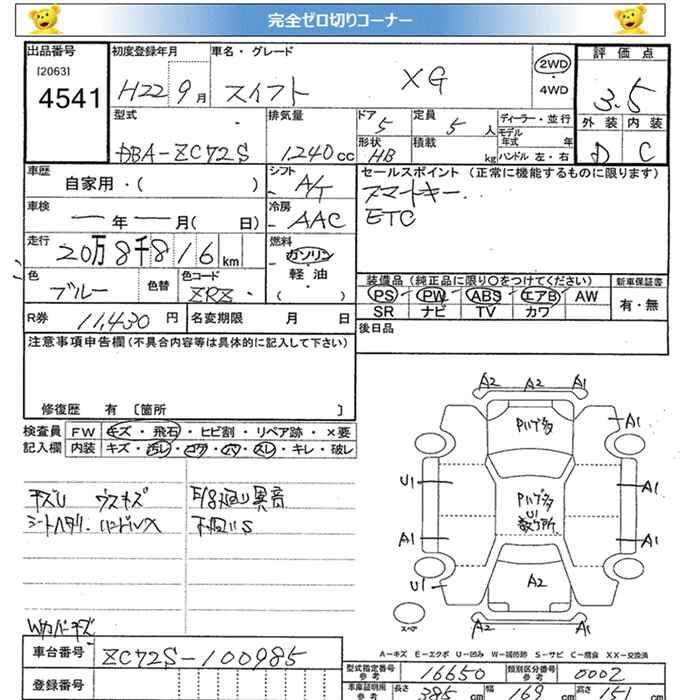 完全ゼロ切りコーナー
出品番号 初度登録年月 車名・グレード 評価点
[2063] 4541 H22 9月 スイフト XG 2WD・4WD 3.5
型式 排気量 ドア 定員 ディーラー・並行 外装 内装
DBA-ZC72S 1,240cc 5 5人 モデル年式 年 D C
形状 HB 積載 kg ハンドル 左・右
車歴 シフト セールスポイント(正常に機能するものに限ります)
自家用・( ) A/T スマートキー
車検 冷房 ETC
ー年ー月( 日) AAC
走行 燃料
20万8千816km ガソリン
色 色替 色コード 軽油 装備品(純正品に限り○をつけてください) 新車保証書
ブルー ZRZ ( ) PS PW ABS エアB AW 有・無
SR ナビ TV カワ
R券 11,430円 名変期限 月 日 後日品
注意事項申告欄(不具合内容等は具体的に記入して下さい)
修復歴 有 [箇所 ]
検査員 FW キズ・飛石・ヒビ割・リペア跡・×要
記入欄 内装 キズ・汚レ・コゲ・穴・スレ・キレ・破レ
キズU ウスキズ
シートヘタリ・ハンドルスレ
異音
A2 A2 A1
バンパ多
A1
U1 A1
U1
A1 A1
U1
A2
A2 A1
スペア
A-キズ E-エクボ U-凹み W-補修跡 S-サビ C-腐食 XX-交換済
車台番号 ZC72S-100985
型式指定番号 参考 16650 類別区分番号 参考 0002
登録番号 車庫証明用 参考 長さ 385cm 幅 169cm 高さ 151cm